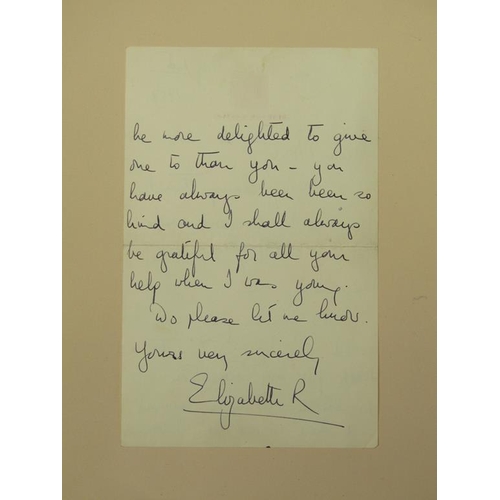 be more delighted to give
one to than you – you
have always been been so
kind and I shall always
be grateful for all your
help when I was young.
Do please let me know.
Yours very sincerely
Elizabeth R